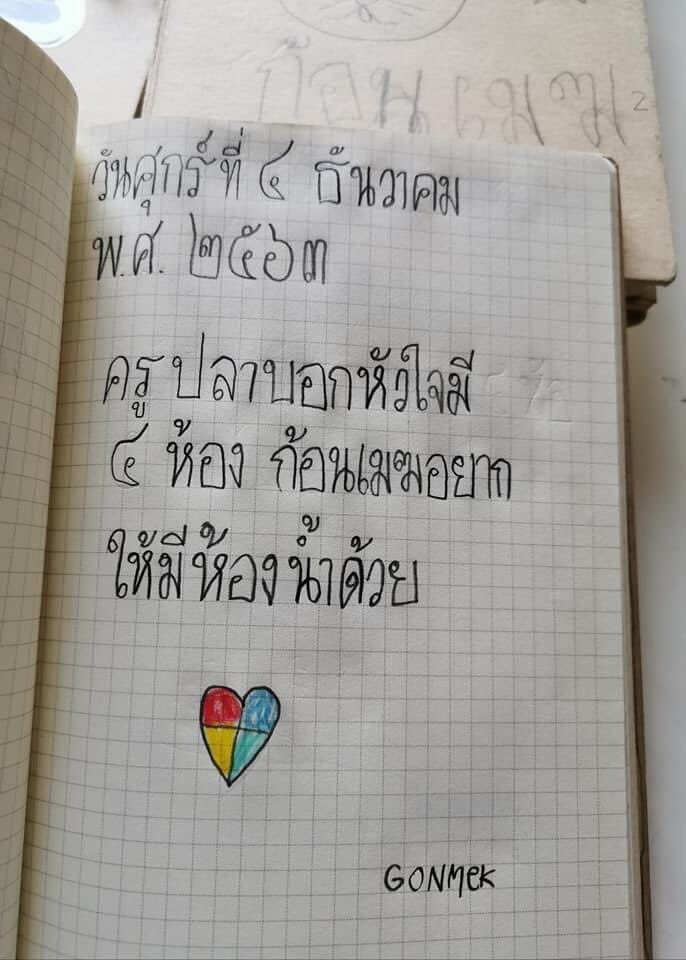 ก้อนเมฆ 2
วันศุกร์ ที่ ๔ ธันวาคม
พ.ศ. ๒๕๖๓
ครู ปลาบอกหัวใจมี
๔ ห้อง ก้อนเมฆอยาก
ให้มีห้องน้ำด้วย
GONMEK